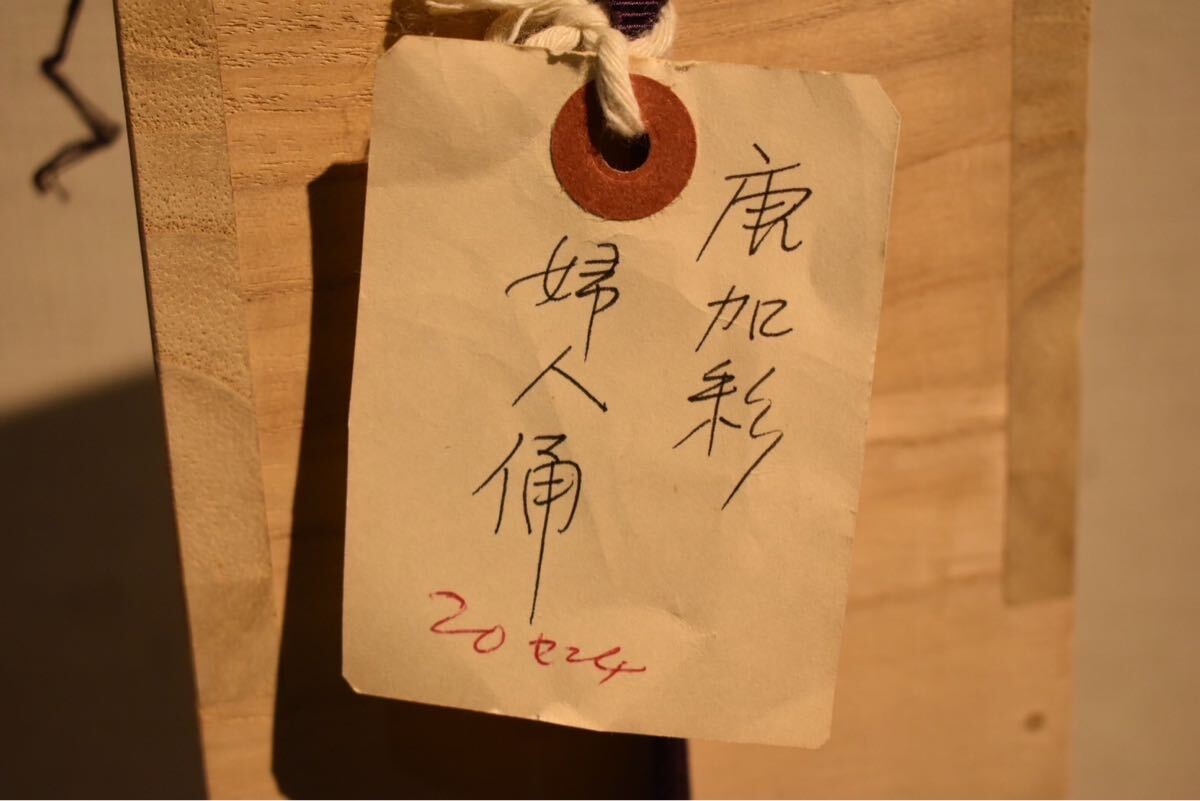 唐加彩
婦人俑
20センチ